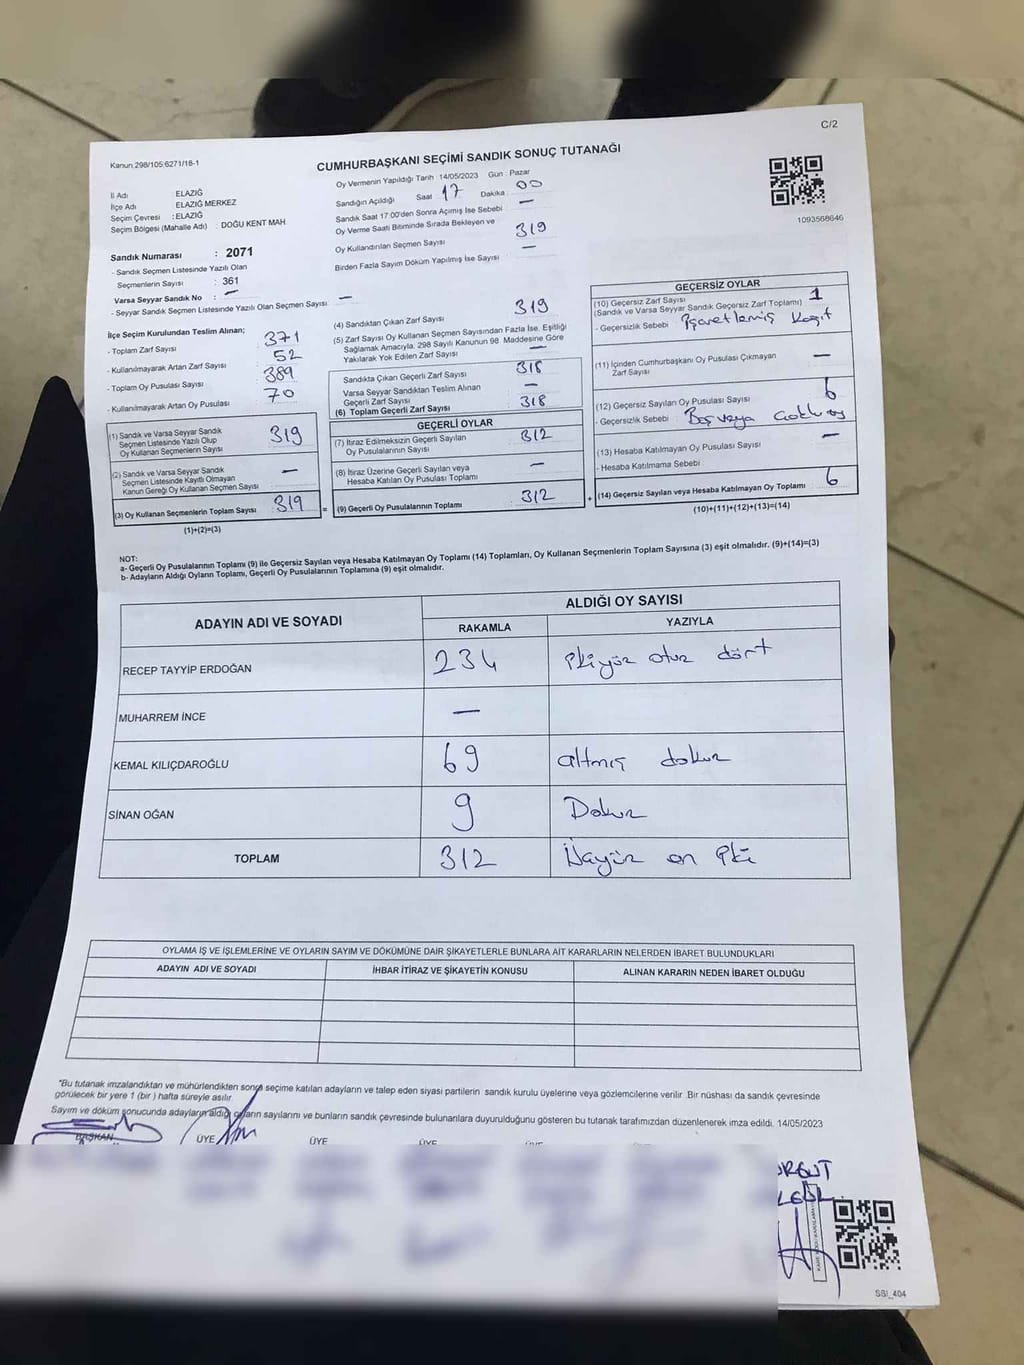 C/2
Kanun 298/105:6271/18-1
CUMHURBAŞKANI SEÇİMİ SANDIK SONUÇ TUTANAĞI
1093568646
İl Adı : ELAZIĞ
İlçe Adı : ELAZIĞ MERKEZ
Seçim Çevresi : ELAZIĞ
Seçim Bölgesi (Mahalle Adı) : DOĞU KENT MAH.
Sandık Numarası : 2071
- Sandık Seçmen Listesinde Yazılı Olan
Seçmenlerin Sayısı : 361
Varsa Seyyar Sandık No : —
- Seyyar Sandık Seçmen Listesinde Yazılı Olan Seçmen Sayısı : —
Oy Vermenin Yapıldığı Tarih 14/05/2023 Gün : Pazar
Sandığın Açıldığı Saat 17 Dakika 00
Sandık Saat 17:00'den Sonra Açılmış İse Sebebi —
Oy Verme Saati Bitiminde Sırada Bekleyen ve
Oy Kullandırılan Seçmen Sayısı 319
Birden Fazla Sayım Döküm Yapılmış İse Sayısı —
İlçe Seçim Kurulundan Teslim Alınan;
- Toplam Zarf Sayısı 371
- Kullanılmayarak Artan Zarf Sayısı 52
- Toplam Oy Pusulası Sayısı 389
- Kullanılmayarak Artan Oy Pusulası 70
(1) Sandık ve Varsa Seyyar Sandık
Seçmen Listesinde Yazılı Olup
Oy Kullanan Seçmenlerin Sayısı 319
(2) Sandık ve Varsa Seyyar Sandık
Seçmen Listesinde Kayıtlı Olmayan
Kanun Gereği Oy Kullanan Seçmen Sayısı —
(3) Oy Kullanan Seçmenlerin Toplam Sayısı 319 =
(1)+(2)=(3)
(4) Sandıktan Çıkan Zarf Sayısı 319
(5) Zarf Sayısı Oy Kullanan Seçmen Sayısından Fazla İse, Eşitliği
Sağlamak Amacıyla, 298 Sayılı Kanunun 98. Maddesine Göre
Yakılarak Yok Edilen Zarf Sayısı —
Sandıkta Çıkan Geçerli Zarf Sayısı 318
Varsa Seyyar Sandıktan Teslim Alınan
Geçerli Zarf Sayısı —
(6) Toplam Geçerli Zarf Sayısı 318
GEÇERLİ OYLAR
(7) İtiraz Edilmeksizin Geçerli Sayılan
Oy Pusulalarının Sayısı 312
(8) İtiraz Üzerine Geçerli Sayılan veya
Hesaba Katılan Oy Pusulası Toplamı —
(9) Geçerli Oy Pusulalarının Toplamı 312 +
GEÇERSİZ OYLAR
(10) Geçersiz Zarf Sayısı 1
(Sandık ve Varsa Seyyar Sandık Geçersiz Zarf Toplamı)
- Geçersizlik Sebebi İşaretlemiş Kağıt
(11) İçinden Cumhurbaşkanı Oy Pusulası Çıkmayan
Zarf Sayısı —
(12) Geçersiz Sayılan Oy Pusulası Sayısı 6
- Geçersizlik Sebebi Boş veya oy
(13) Hesaba Katılmayan Oy Pusulası Sayısı —
- Hesaba Katılmama Sebebi
(14) Geçersiz Sayılan veya Hesaba Katılmayan Oy Toplamı 6
(10)+(11)+(12)+(13)=(14)
NOT:
a- Geçerli Oy Pusulalarının Toplamı (9) ile Geçersiz Sayılan veya Hesaba Katılmayan Oy Toplamı (14) Toplamları, Oy Kullanan Seçmenlerin Toplam Sayısına (3) eşit olmalıdır. (9)+(14)=(3)
b- Adayların Aldığı Oyların Toplamı, Geçerli Oy Pusulalarının Toplamına (9) eşit olmalıdır.
ADAYIN ADI VE SOYADI
ALDIĞI OY SAYISI
RAKAMLA YAZIYLA
RECEP TAYYİP ERDOĞAN 234 İkiyüz otuz dört
MUHARREM İNCE —
KEMAL KILIÇDAROĞLU 69 altmış dokuz
SİNAN OĞAN 9 Dokuz
TOPLAM 312 Üçyüz on iki
OYLAMA İŞ VE İŞLEMLERİNE VE OYLARIN SAYIM VE DÖKÜMÜNE DAİR ŞİKAYETLERLE BUNLARA AİT KARARLARIN NELERDEN İBARET BULUNDUKLARI
ADAYIN ADI VE SOYADI İHBAR İTİRAZ VE ŞİKAYETİN KONUSU ALINAN KARARIN NEDEN İBARET OLDUĞU
"Bu tutanak imzalandıktan ve mühürlendikten sonra seçime katılan adayların ve talep eden siyasi partilerin sandık kurulu üyelerine veya gözlemcilerine verilir. Bir nüshası da sandık çevresinde
görülecek bir yere 1 (bir ) hafta süreyle asılır.
Sayım ve döküm sonucunda adayların aldığı oyların sayılarını ve bunların sandık çevresinde bulunanlara duyurulduğunu gösteren bu tutanak tarafımızdan düzenlenerek imza edildi. 14/05/2023
BAŞKAN ÜYE ÜYE ÜYE ÜYE
SSI_404